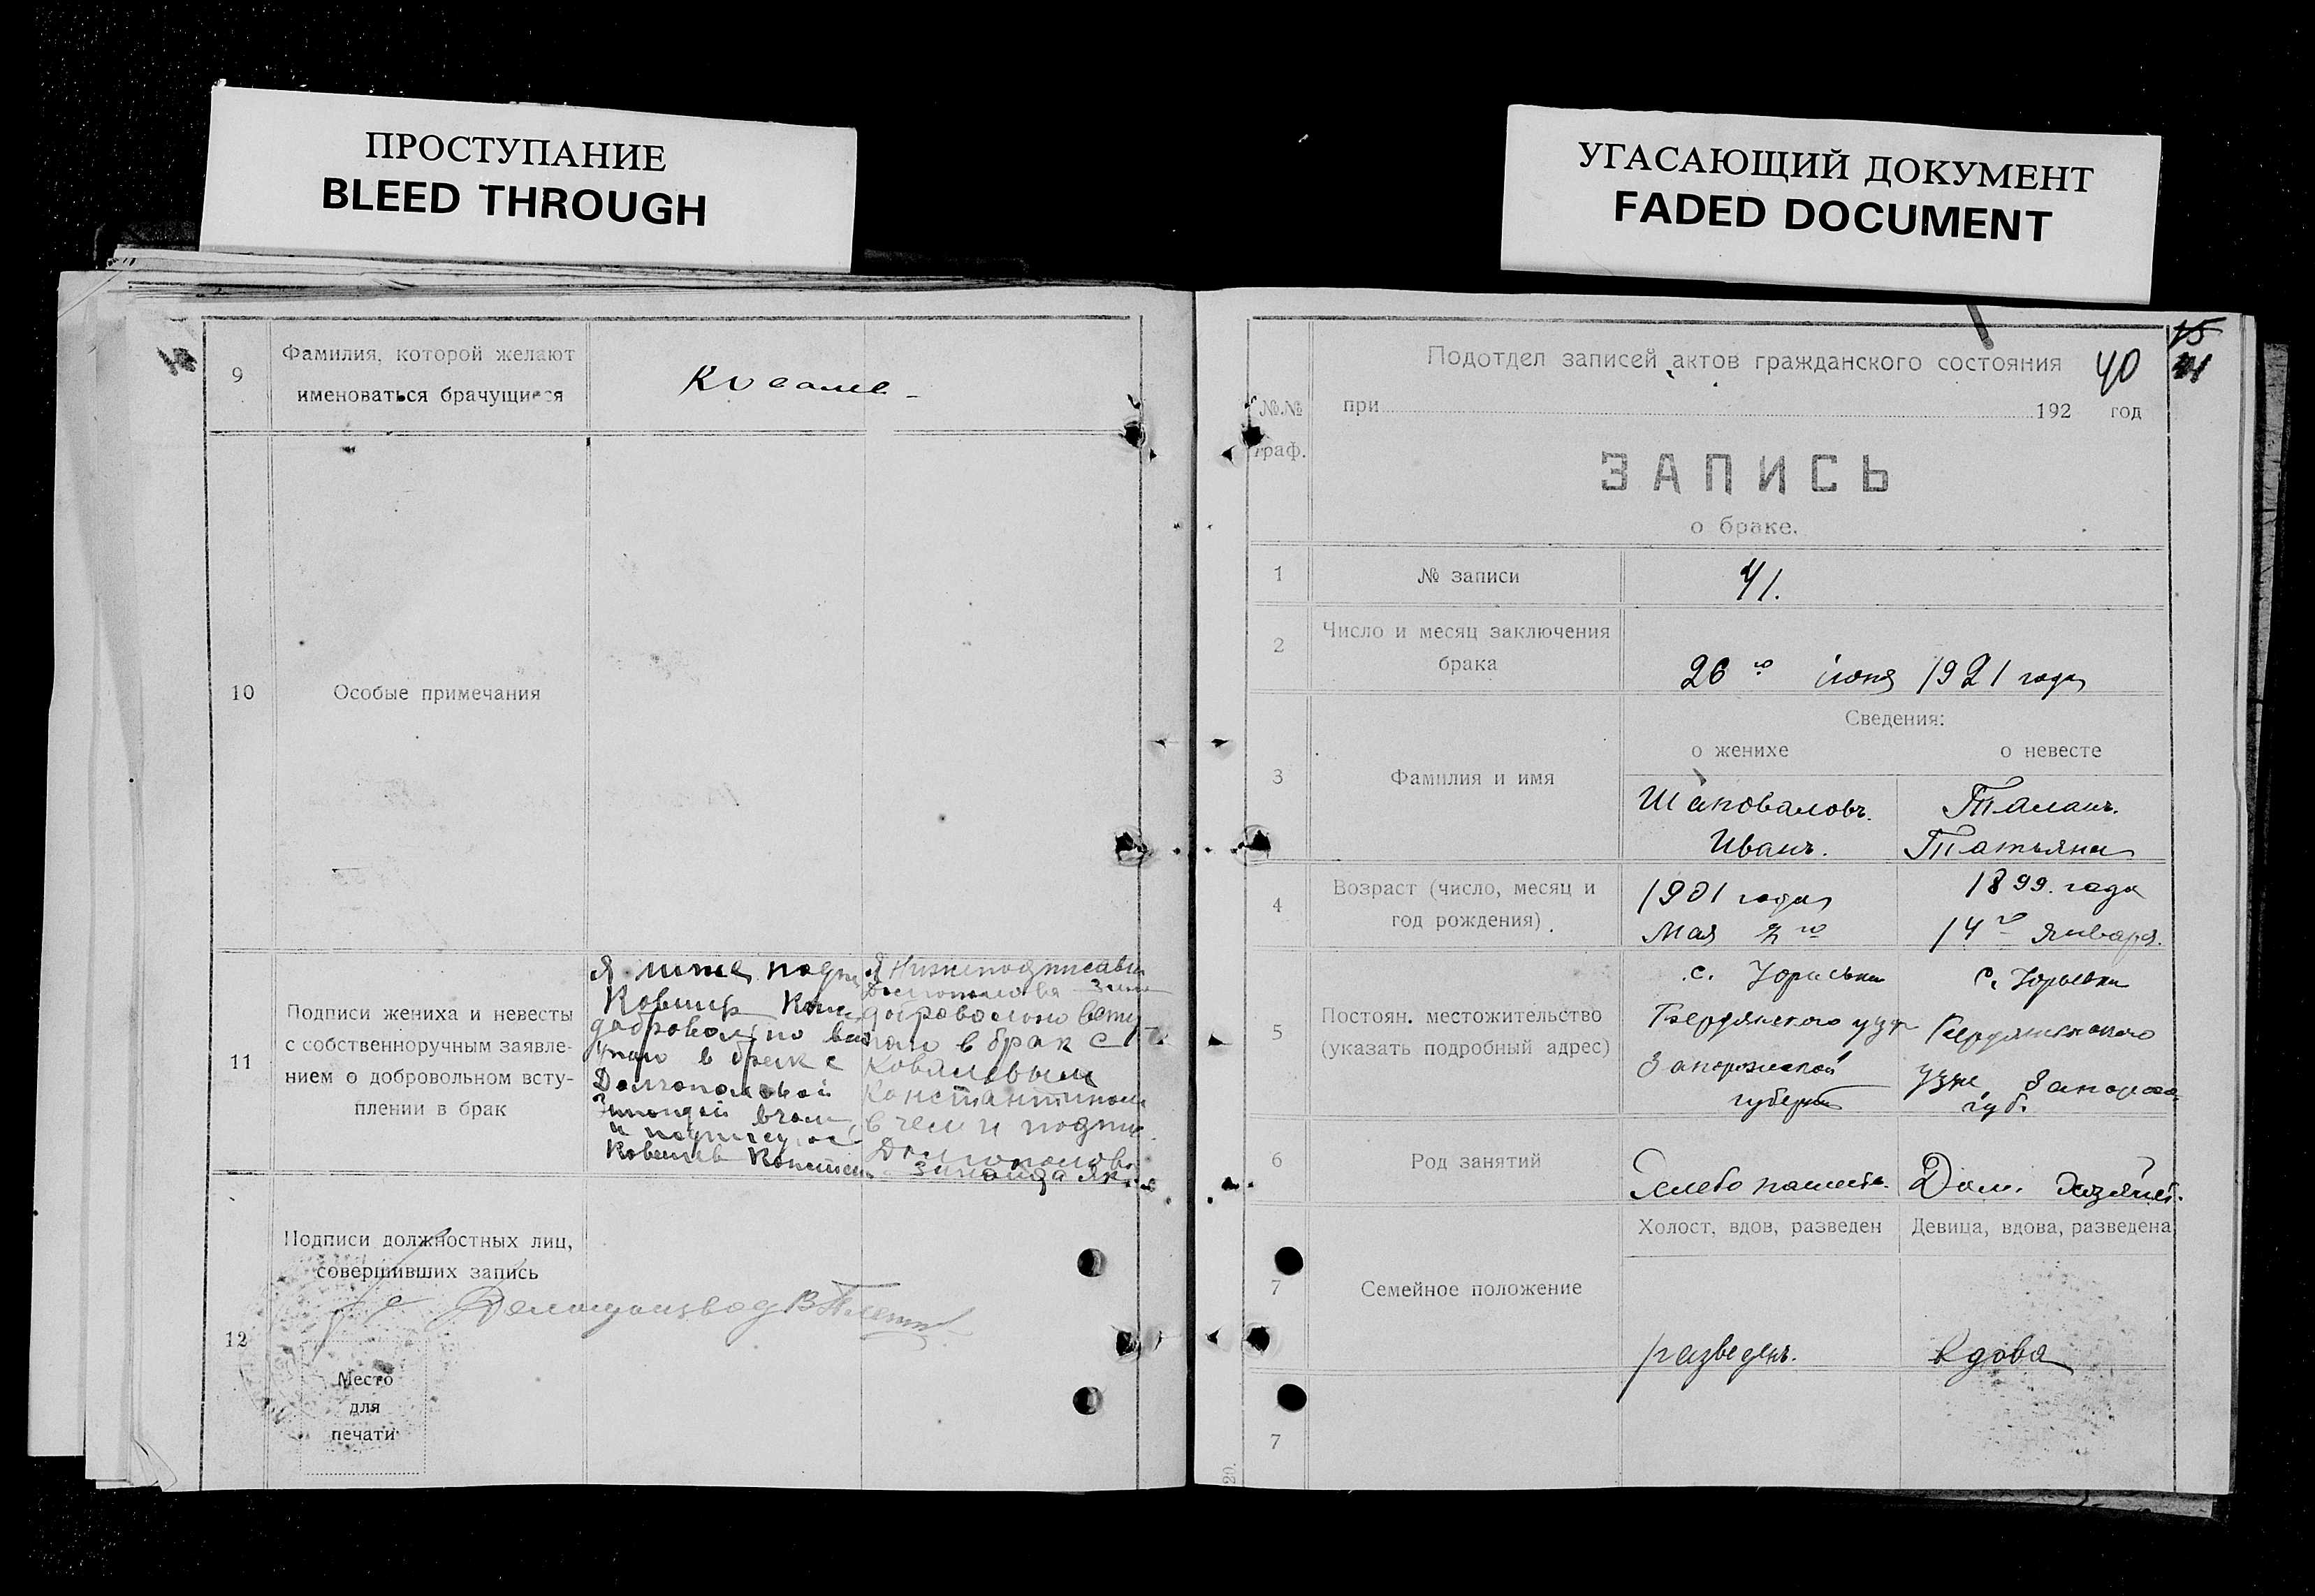 ПРОСТУПАНИЕ
BLEED THROUGH
УГАСАЮЩИЙ ДОКУМЕНТ
FADED DOCUMENT
9
Фамилия, которой желают
именоваться брачущиеся
10
Особые примечания
11
Подписи жениха и невесты
с собственноручным заявле-
нием о добровольном всту-
плении в брак
Я ниже
добровольно
в брак с
Долгополовой
Я Нижеподписавш
добровольно всту
паю в брак с
Ковалевым
Константином
в чем и подпис
Долгополова
Зинаида Як
12
Подписи должностных лиц,
совершивших запись
Делопроизвод
Место
для
печати
15
41
40
Подотдел записей актов гражданского состояния
№№
граф.
при 192 год
ЗАПИСЬ
о браке.
1
№ записи
41.
2
Число и месяц заключения
брака
26 го июня 1921 года
3
Фамилия и имя
Сведения:
о женихе
о невесте
Шаповаловъ.
Иванъ.
Таланъ.
Татьяна
4
Возраст (число, месяц и
год рождения)
1901 года
Мая 2 го
1899. года
14 го Января.
5
Постоян. местожительство
(указать подробный адрес)
с.
Бердянского уезд
Запорожской
губернии
с.
Бердянского
губ.
6
Род занятий
Хлебопашест.
Дом. Хозяйст.
7
Семейное положение
Холост, вдов, разведен
Девица, вдова, разведена
разведенъ.
Вдова
7
20.